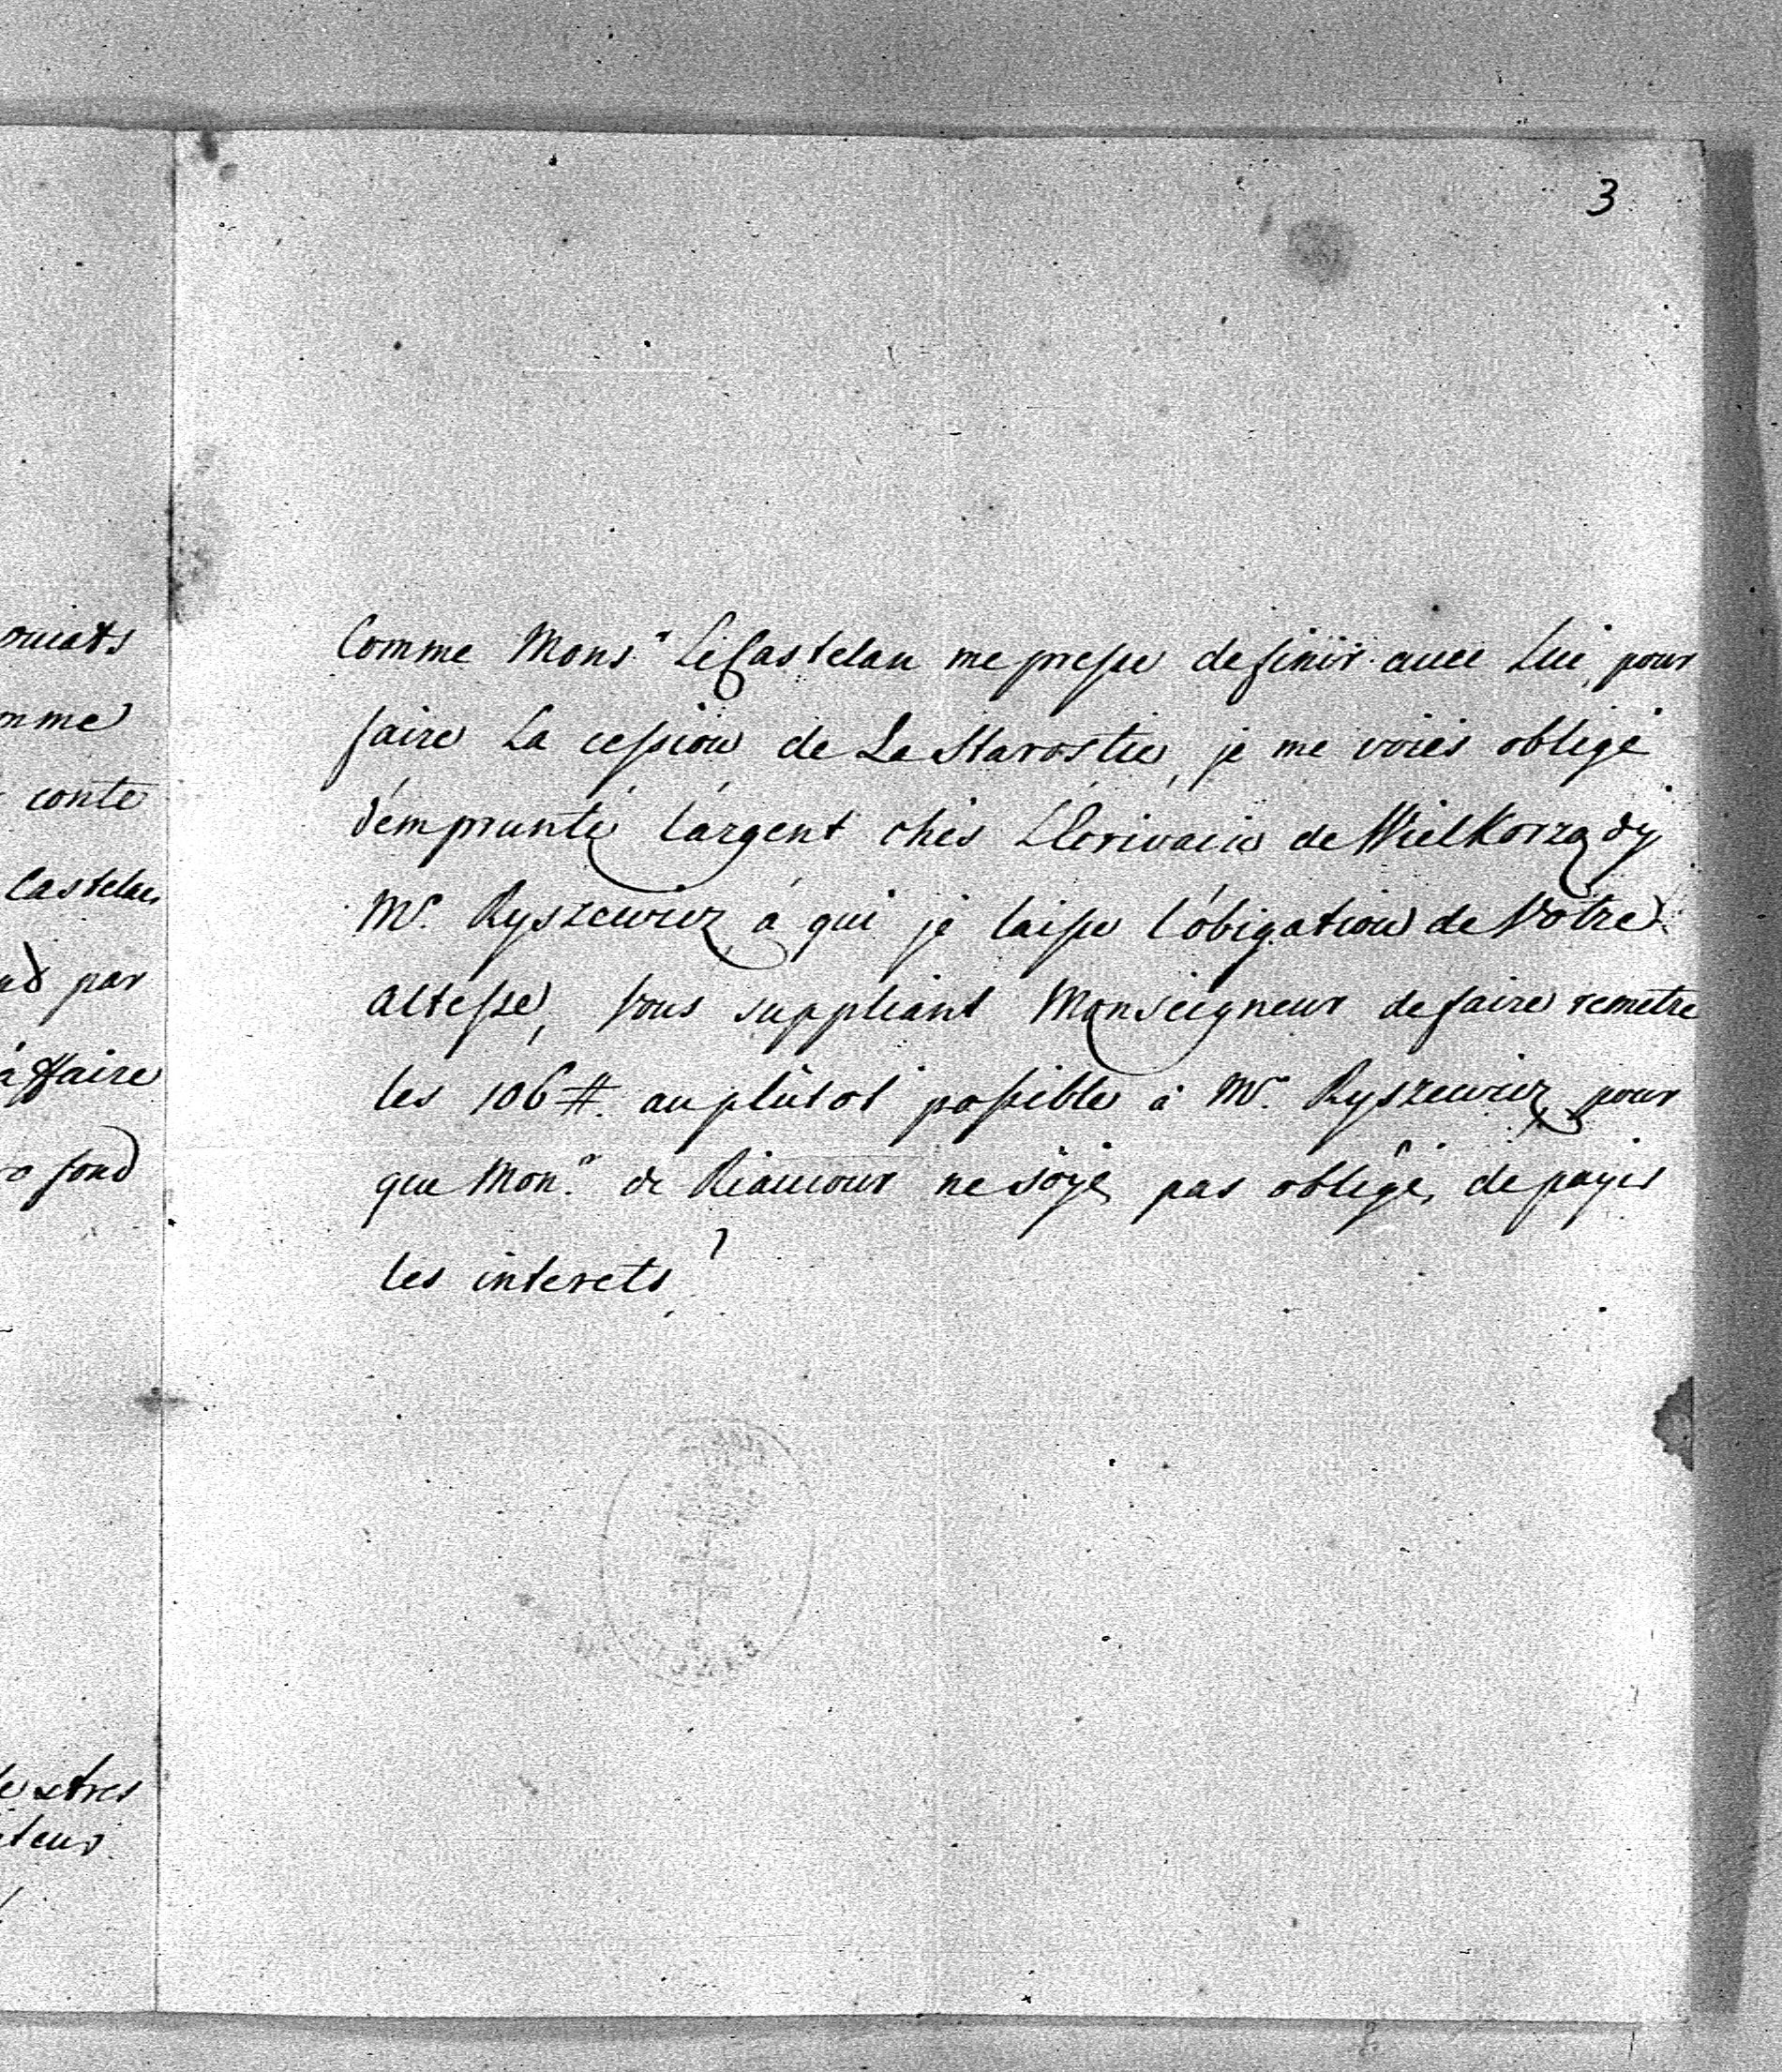 3
Comme Mons.r Le Castelan me presse de finir avec Lui, pour
faire La cession de La Starostie, je me voiés obligé
d'emprunté l'argent chés L'Ecrivain de Wielkorządy
Mr. Ryszewicz à qui je laisse l'obigation de Votre
Altesse, Vous suppliant Monseigneur de faire remetre
les 106 #. au plûtot possible à Mr. Ryszewicz pour
que Mon.r de Riaucour ne soye pas obligé, de payer
les interets
conte
Castelan
par
affaire
fond